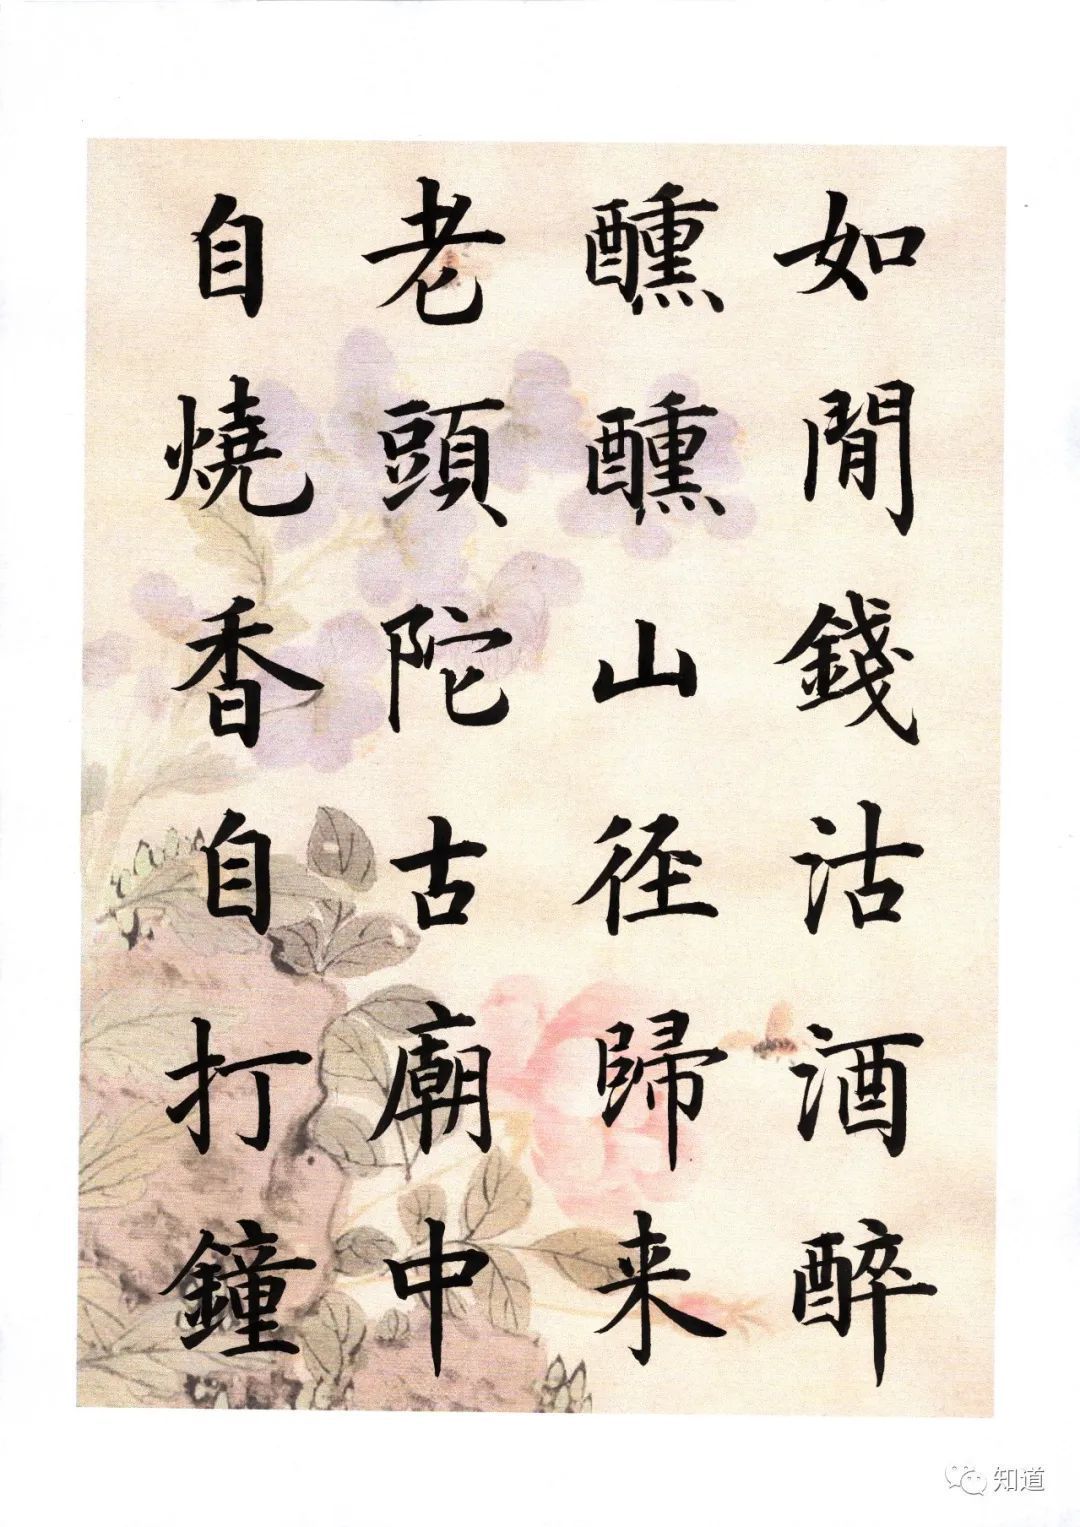 如閒錢沽酒醉
醺醺山径歸来
老頭陀古廟中
自燒香自打鐘
知道